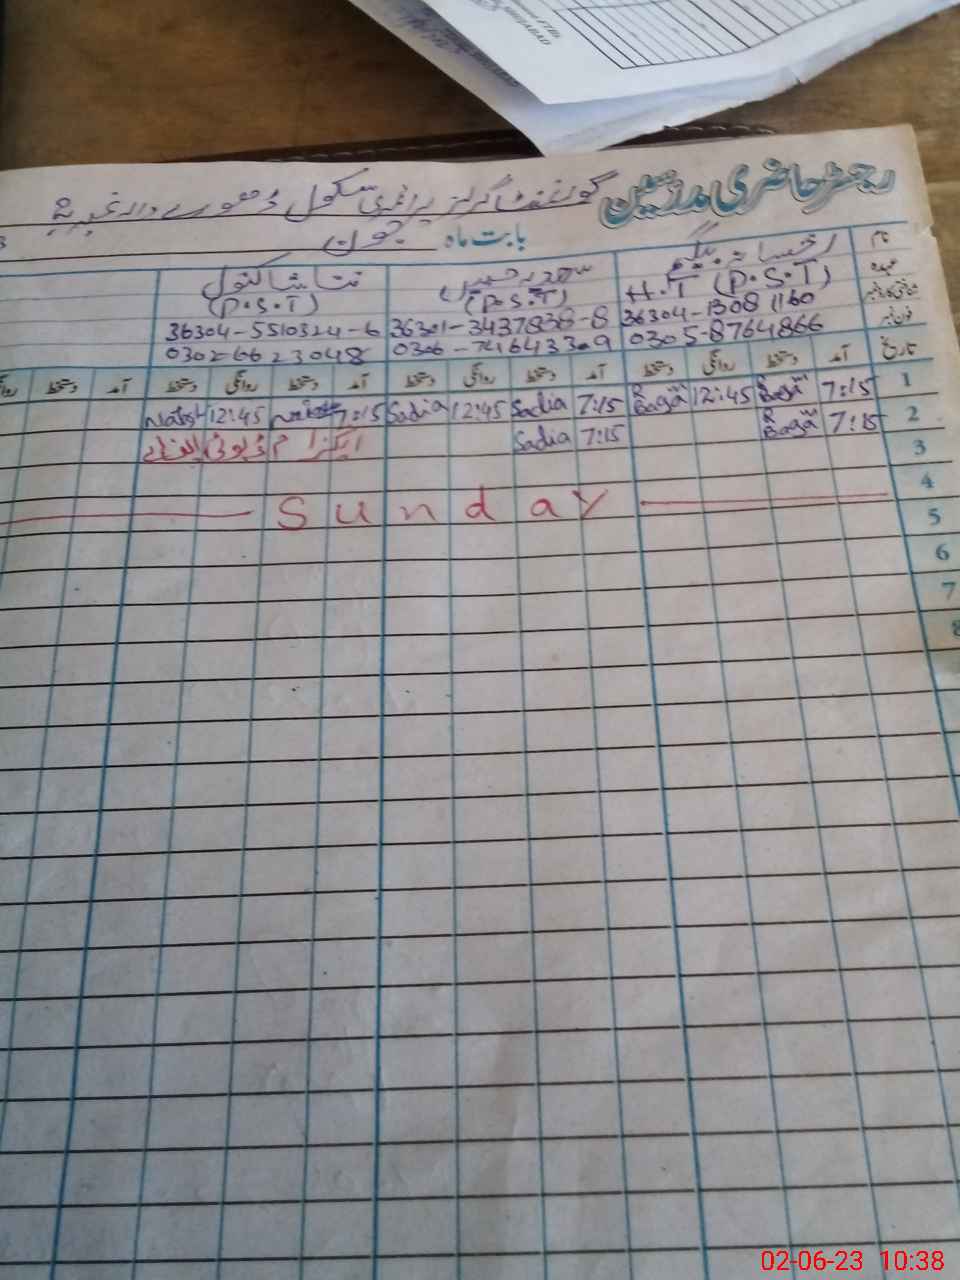 رجسٹر حاضری مدرسین گورنمنٹ گرلز پرائمری سکول
بابت ماہ جون
نام رخسانہ بیگم سعدیہ حسین نتاشا کنول
عہدہ H.T (P.S.T) (P.S.T) (P.S.T)
شناختی کارڈ نمبر 36304-1308 1160 36301-3437838-8 36304-5510324-6
فون نمبر 0305-8764866 0306-74643309 0302-6623048
تاریخ آمد دستخط روانگی دستخط آمد دستخط روانگی دستخط آمد دستخط روانگی دستخط آمد دستخط
1 7:15 R Baga 12:45 R Baga 7:15 Sadia 12:45 Sadia 7:15 12:45
2 7:15 R Baga 7:15 Sadia ایگزام ڈیوٹی
3
4 Sunday
5
6
7
8
02-06-23 10:38